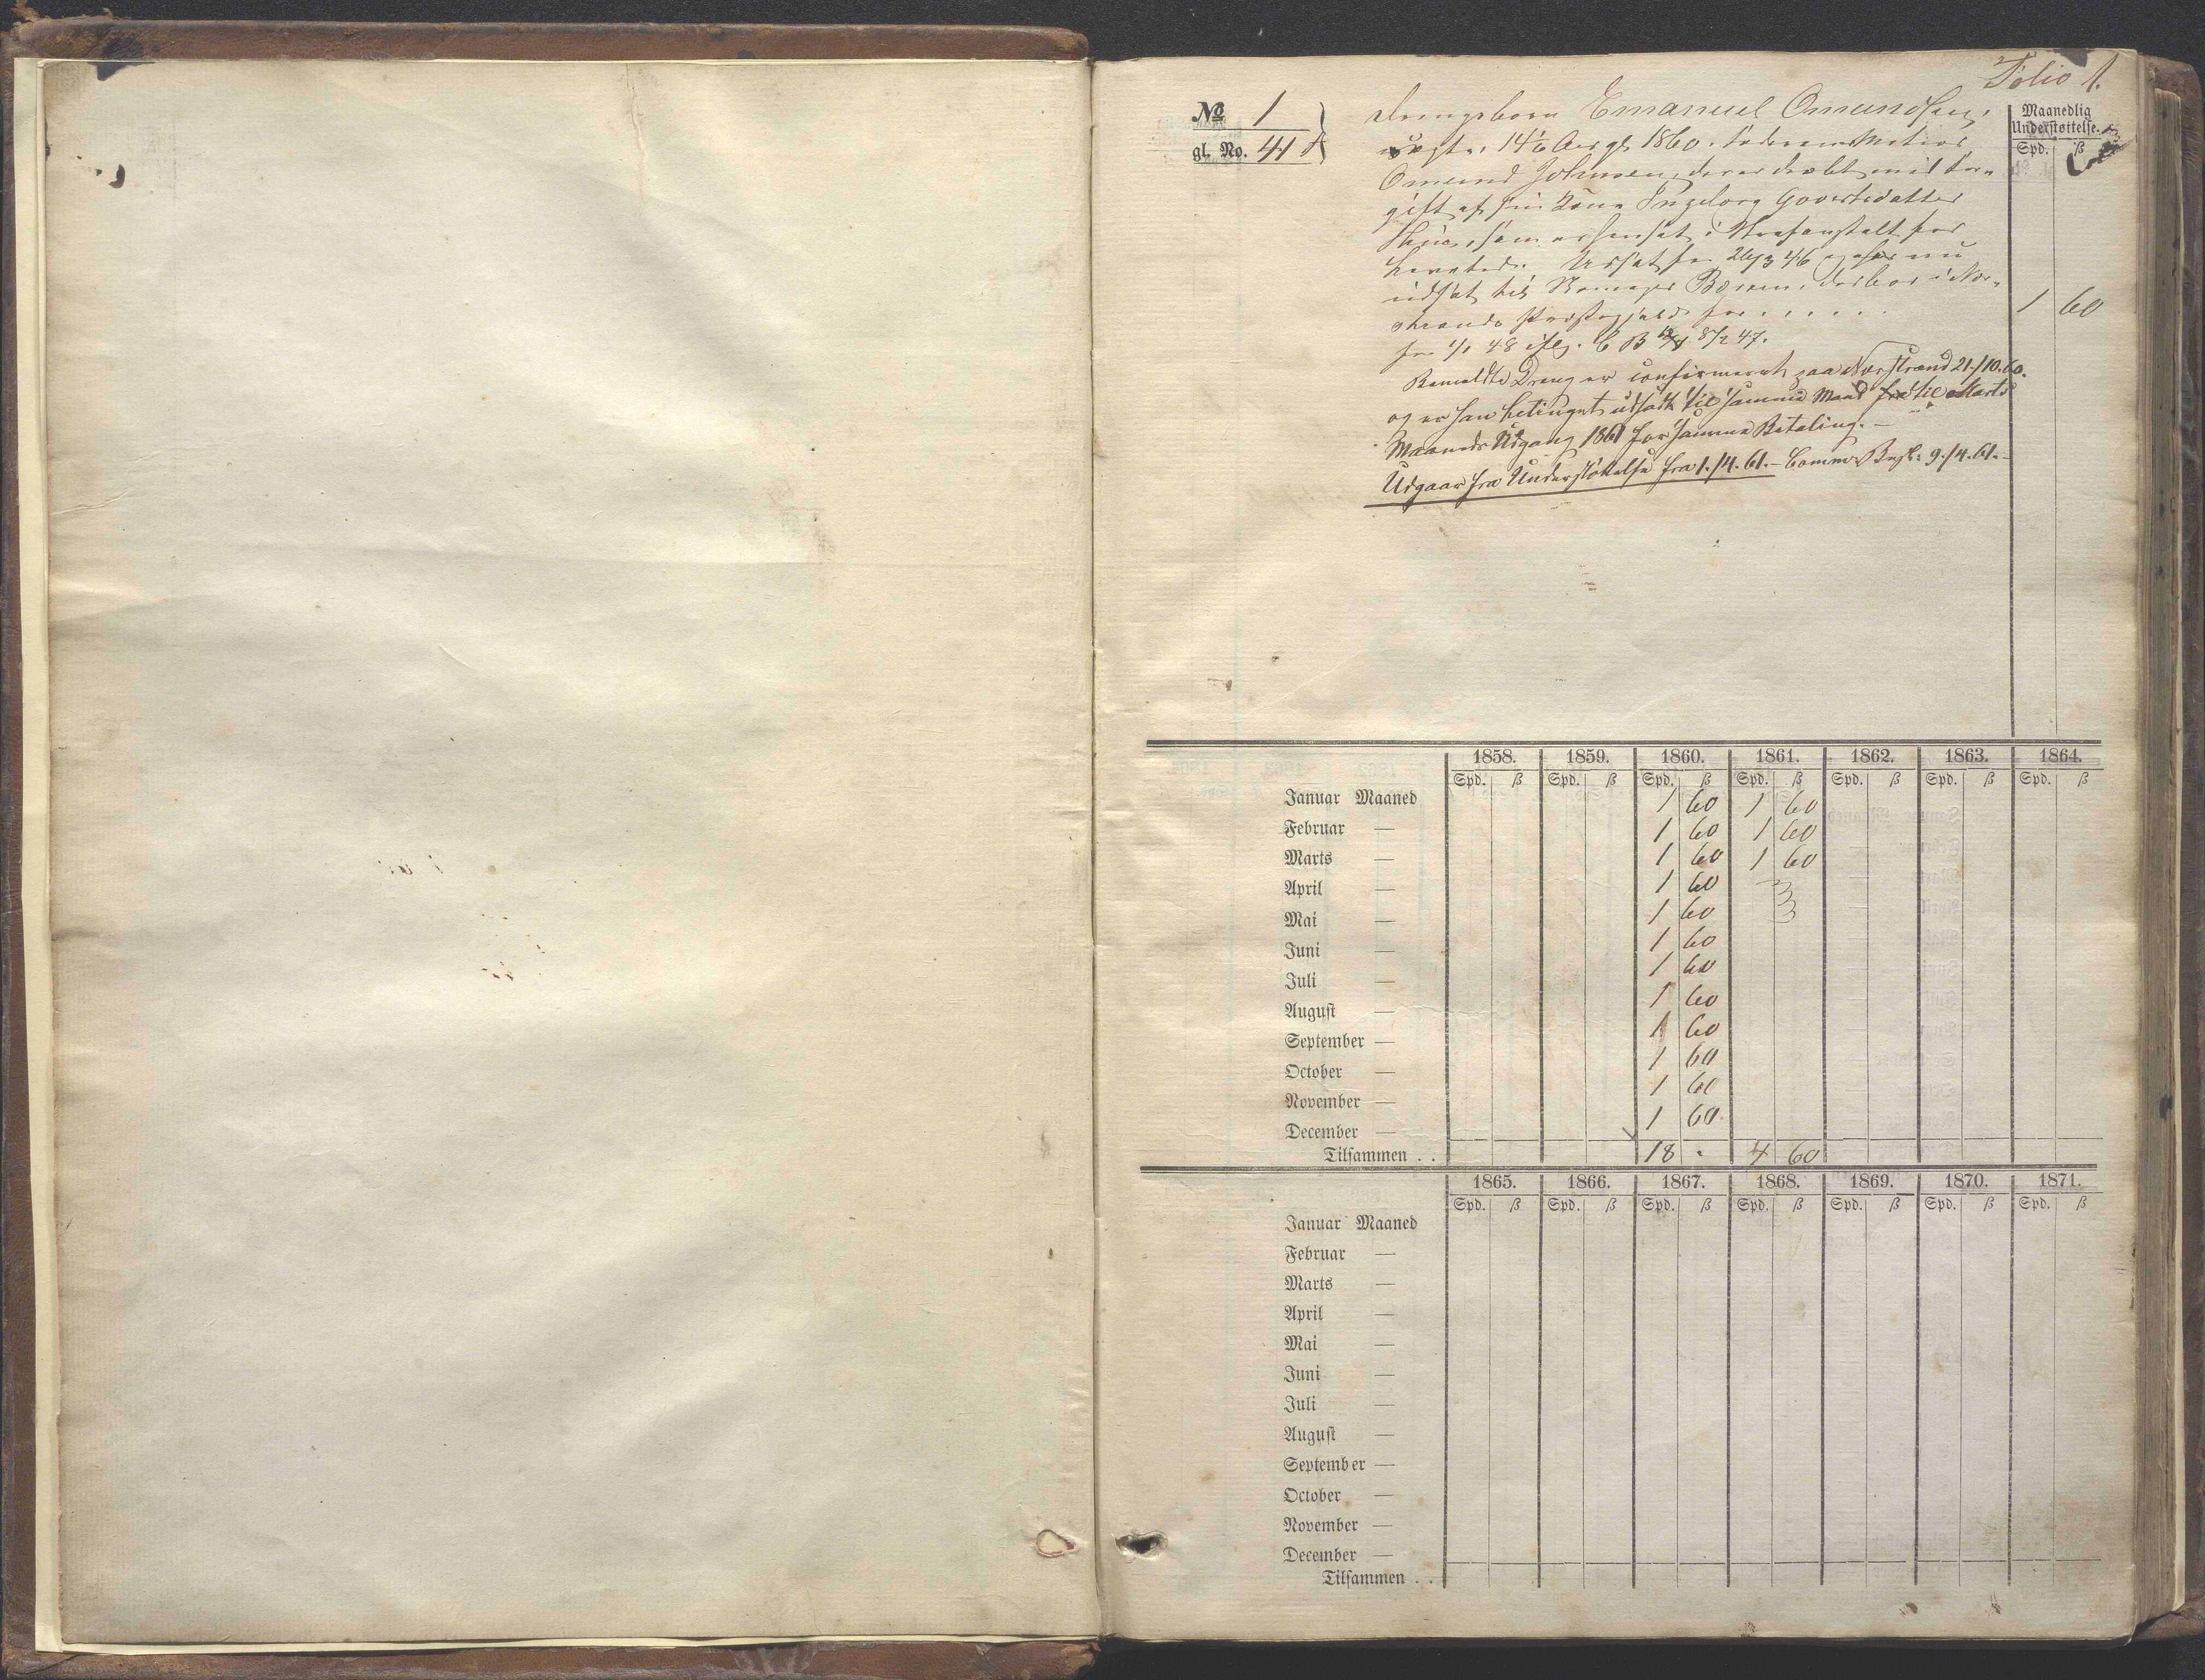 Folio 1.
No 1
gl. No. 41
Maanedlig
Understøttelse.
Spd. ß
Drengebarn Emanuel Omundsen,
14 1/6 Aar gl. 1860.
Omund Johnsen, der er dræbt med For-
gift af sin Kone Ingeborg Govertsdatter
som er hensat i Strafanstalt for
Levetid. Udsat fra 26/3 46 og er nu
udsat til Børsen, der bor i Ner-
strands Præstegjæld for . . . . . . 1 60
fra 1/1 48 iflg. C B 8/2 47.
Bemeldte Dreng er confirmeret paa Nerstrand 21./10.60.
og er han betinget udsadt til samme Mand fra til Marts
Maaneds Udgang 1861 for samme Betaling. –
Udgaar fra Understøttelse fra 1./4. 61. – Comm. Besl. 9./4. 61. –
1858. 1859. 1860. 1861. 1862. 1863. 1864.
Spd. ß Spd. ß Spd. ß Spd. ß Spd. ß Spd. ß Spd. ß
Januar Maaned 1 60 1 60
Februar — 1 60 1 60
Marts — 1 60 1 60
April — 1 60
Mai — 1 60
Juni — 1 60
Juli — 1 60
August — 1 60
September — 1 60
October — 1 60
November — 1 60
December — 1 60
Tilsammen . . 18 . 4 60
1865. 1866. 1867. 1868. 1869. 1870. 1871.
Spd. ß Spd. ß Spd. ß Spd. ß Spd. ß Spd. ß Spd. ß
Januar Maaned
Februar —
Marts —
April —
Mai —
Juni —
Juli —
August —
September —
October —
November —
December —
Tilsammen . .